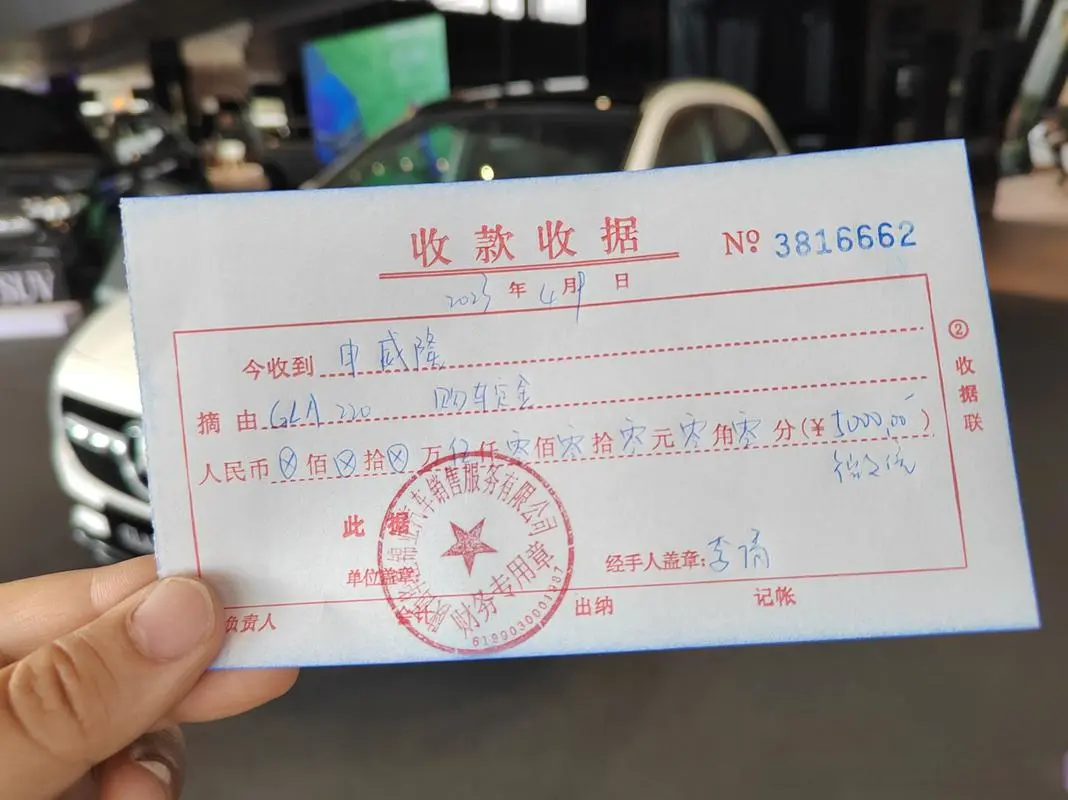 收款收据 Nº 3816662
2023年4月9日
今收到 申威隆
摘由 GLA 220 购车定金
人民币 ⊗ 佰 ⊗ 拾 ⊗ 万 伍 仟 零 佰 零 拾 零 元 零 角 零 分 (¥ 5000.00)
微信
② 收据联
此据
汽车销售服务有限公司
财务专用章
单位盖章:
经手人盖章: 李倩
负责人 会计 出纳 记帐
SUV